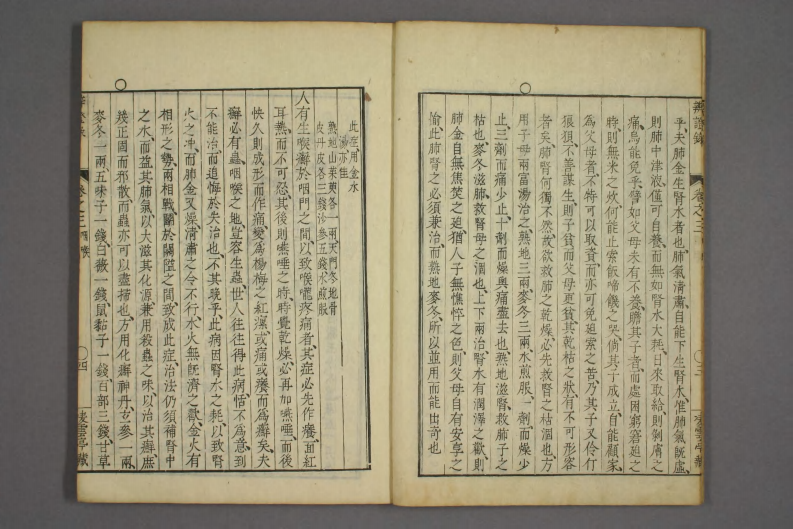 乎夫肺金生腎水者也肺氣清肅自能下生腎水惟肺氣既虛
則肺中津液僅可自養而無如腎水大耗日來取給則剝膚之
痛烏能免乎譬如父母未有不養贍其子者而處困窮窘迫之
時則無米之炊何能止索飯啼饑之哭倘其子成立自能顧家
為父母者不特可以取資而亦可免迫索之苦乃其子又伶仃
狼狽不善謀生則子貧而父母更貧其乾枯之狀有不可形容
者矣肺腎何獨不然故欲救肺之乾燥必先救腎之枯涸也方
用子母兩富湯治之熟地三兩麥冬三兩水煎服一劑而燥少
止三劑而痛少止十劑而燥與痛盡去也熟地滋腎救肺子之
枯也麥冬滋肺救腎母之涸也上下兩治腎水有潤澤之歡則
肺金自無焦焚之迫猶人子無憔悴之色則父母自有安享之
愉此肺腎之必須兼治而熟地麥冬所以並用而能出奇也
此症用金水
湯亦佳
熟地山茱萸各一兩天門冬地骨
皮丹皮各三錢沙參五錢水煎服
人有生喉癬於咽門之間以致喉嚨疼痛者其症必先作癢面紅
耳熱而不可忍其後則嚥唾之時時覺乾燥必再加嚥唾而後
快久則成形而作痛變為楊梅之紅瘰或痛或癢而為癬矣夫
癬必有蟲咽喉之地豈容生蟲世人往往得此病恬不為意到
不能治而追悔於失治也不其晚乎此病因腎水之耗以致腎
火之冲而肺金又燥清肅之令不行水火無既濟之歡金火有
相形之勢兩相戰鬬於關隘之間致成此症治法仍須補腎中
之水而益其肺氣以大滋其化源兼用殺蟲之味以治其癬庶
幾正固而邪散而蟲亦可以盡掃也方用化癬神丹玄參一兩
麥冬一兩五味子一錢白薇一錢鼠黏子一錢百部三錢甘草
卷之三